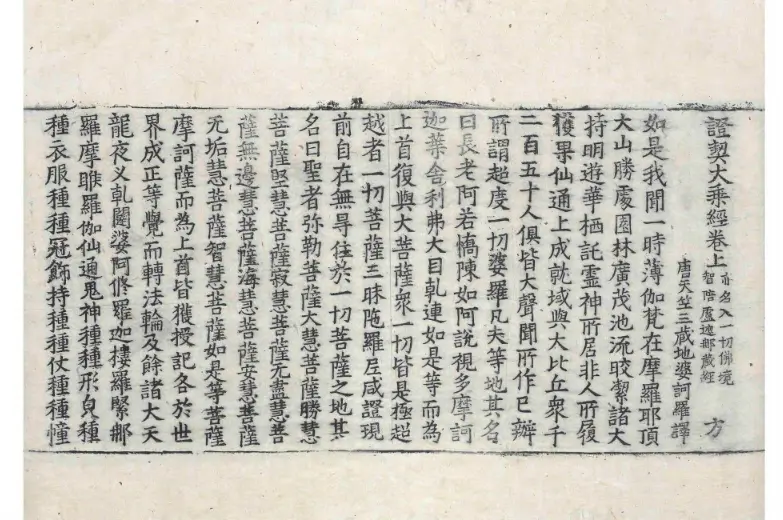 證契大乘經卷上 亦名入一切佛境智陪盧遮那藏經 方
唐天竺三藏地婆訶羅譯
如是我聞一時薄伽梵在摩羅耶頂
大山勝處園林廣茂池流皎絜諸大
持明遊華栖託靈神所居非人所履
獲果仙通上成就域與大比丘衆千
二百五十人俱皆大聲聞所作已辦
所謂超度一切婆羅凡夫等地其名
曰長老阿若憍陳如阿說視多摩訶
迦葉舍利弗大目乹連如是等而為
上首復與大菩薩衆一切皆是極超
越者一切菩薩三昧陁羅尼咸證現
前自在無㝵住於一切菩薩之地其
名曰聖者弥勒菩薩大慧菩薩勝慧
菩薩堅慧菩薩寂慧菩薩无盡慧菩
薩無邊慧菩薩海慧菩薩安慧菩薩
无垢慧菩薩智慧菩薩如是等菩薩
摩訶薩而為上首皆獲授記各於世
界成正等覺而轉法輪及餘諸大天
龍夜叉乹闥婆阿修羅迦樓羅緊那
羅摩睺羅伽仙通鬼神種種形皃種
種衣服種種冠飾持種種仗種種幢